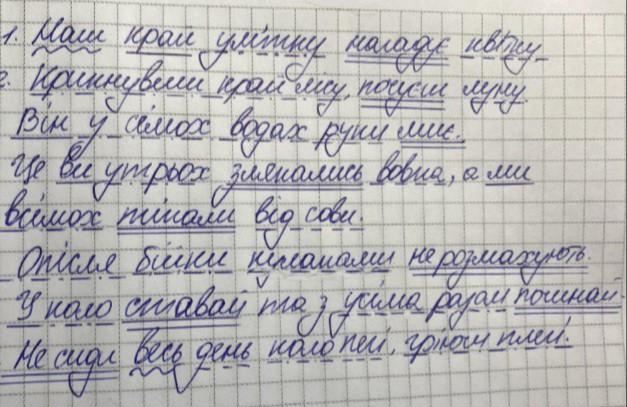 1. Наш край улітку нагадує квітку
2. Крикнувши край лісу, почуєш луну.
Він у сімох водах руки миє.
Це ви утрьох злякались вовка, а ми
всімох тікали від сови.
Опісля бійки кулаками не розмахують.
У коло ставай та з усіма разом починай.
Не сиди весь день коло печі, гріючи плечі.